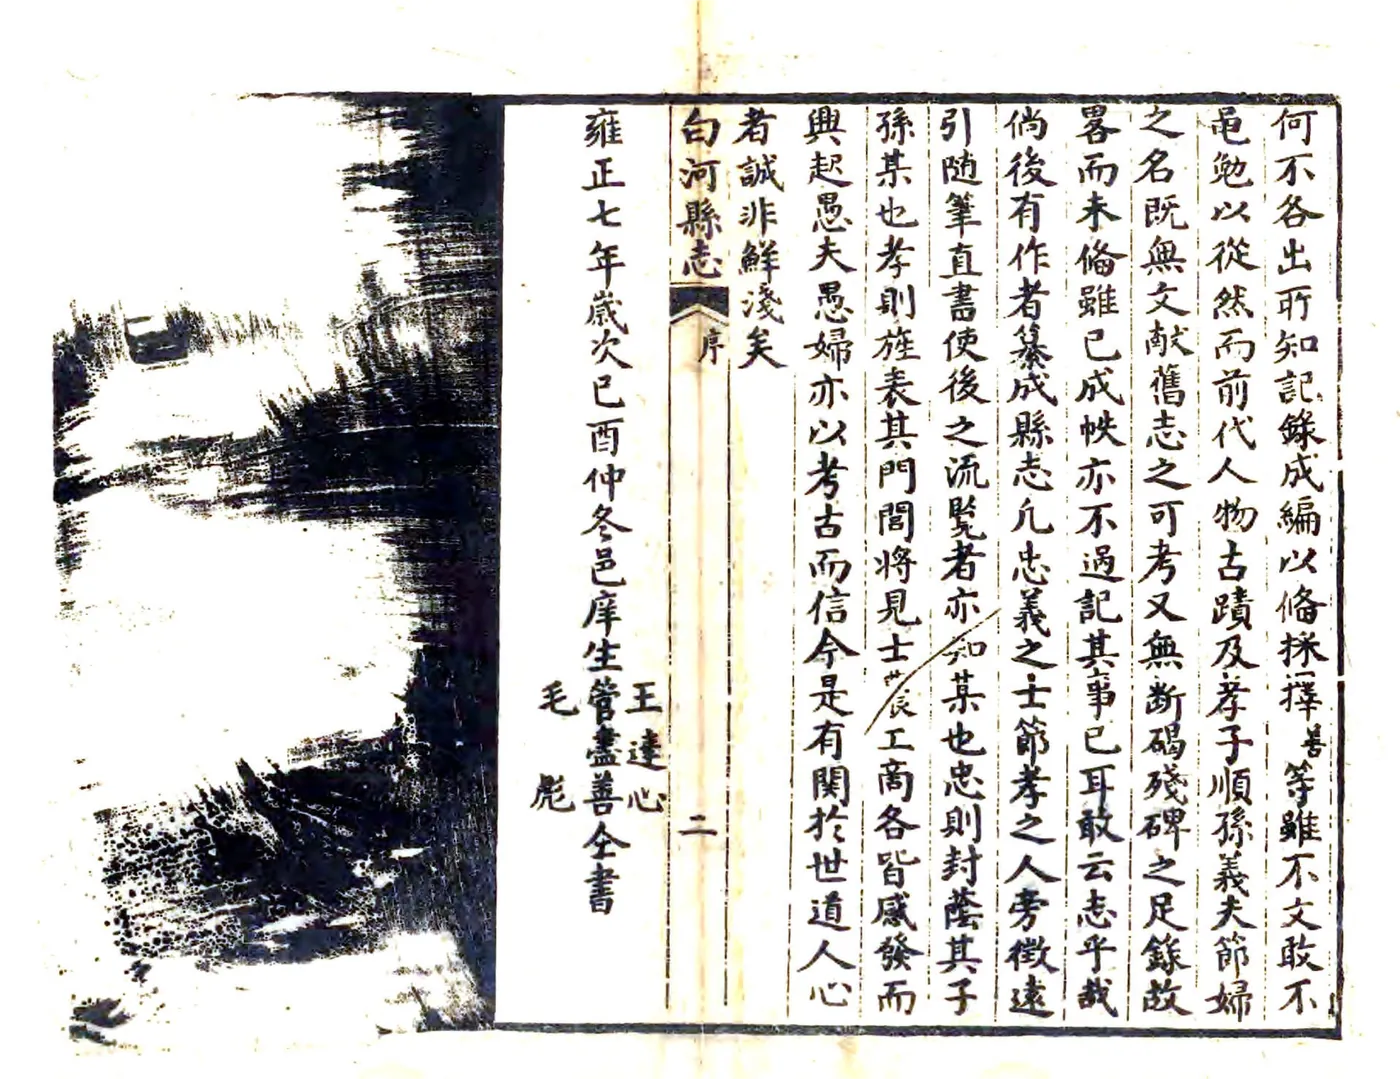 何不各出所知記錄成編以俻採擇善等雖不文敢不
邑勉以從然而前代人物古蹟及孝子順孫義夫節婦
之名既無文献舊志之可考又無断碣殘碑之足錄故
畧而未俻雖已成帙亦不過記其事已耳敢云志乎哉
倘後有作者纂成縣志凢忠義之士節孝之人旁徵遠
引随筆直書使後之流覧者亦知某也忠則封蔭其子
孫某也孝則旌表其門閭將見士世長工商各皆感發而
興起愚夫愚婦亦以考古而信今是有関於世道人心
者誠非鮮淺矣
白河縣志
序
二
雍正七年歲次己酉仲冬邑庠生
王達心
管盡善
毛彪
仝書